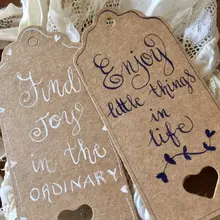 Find
Joy
in the
ORDINARY
Enjoy
little things
in
life